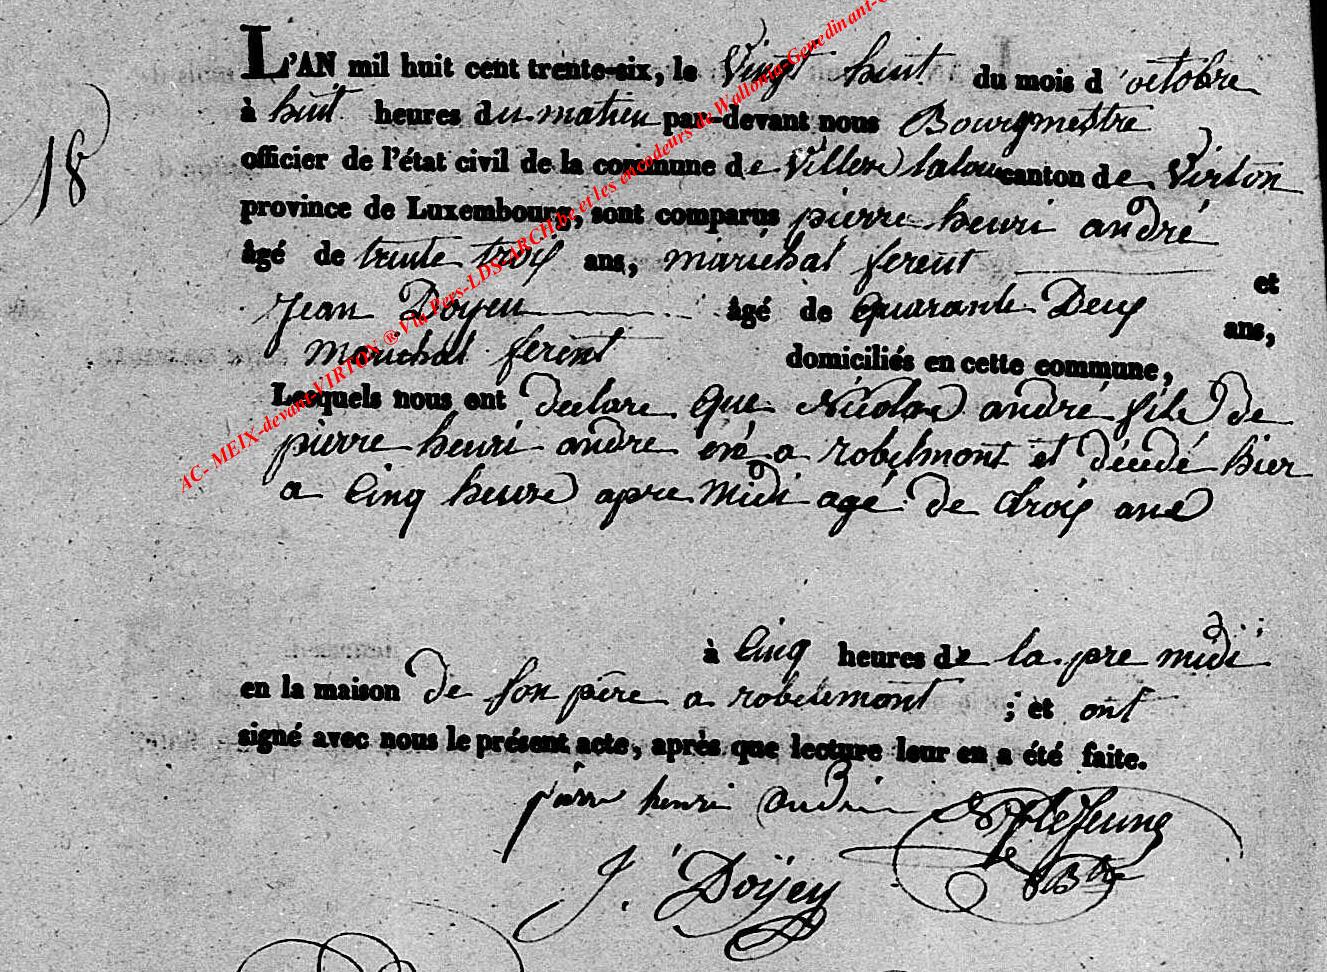 L'AN mil huit cent trente-six, le Vingt huit du mois d'octobre
18
à huit heures du matin par-devant nous Bourgmestre
officier de l'état civil de la commune de Villers laloue canton de Virton
province de Luxembourg, sont comparus pierre henri andré
âgé de trente trois ans, maréchal ferent et
Jean Doyen âgé de quarante Deux ans,
maréchal ferent domiciliés en cette commune,
Lesquels nous ont declare que Nicolas andré fils de
pierre henri andre né a robelmont et décédé hier
a cinq heures apre midi agé de trois ans
à cinq heures de la pre midi
en la maison de son père a robelemont ; et ont
signé avec nous le présent acte, après que lecture leur en a été faite.
pierre henri andri Lejeune
J. Doÿen Btre
AC- MEIX-devant-VIRTON ® Via Pers-LDS-ARCH.be et les encodeurs de Wallonia-Genedinant-